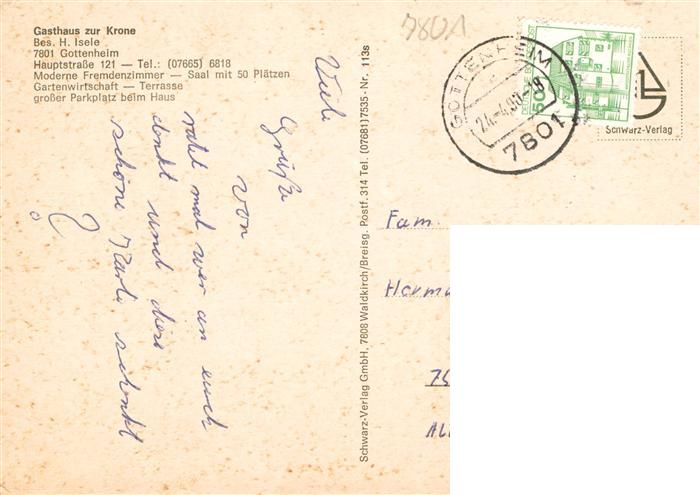 Gasthaus zur Krone
Bes. H. Isele
7801 Gottenheim
Hauptstraße 121 — Tel.: (07665) 6818
Moderne Fremdenzimmer — Saal mit 50 Plätzen
Gartenwirtschaft — Terrasse
großer Parkplatz beim Haus
7801
GOTTENHEIM
24.-4.80-18
7801
50
Schwarz-Verlag
Viele
Grüße
von
ratet mal wer an euch
denkt und diese
schöne Karte schenkt
?
Schwarz-Verlag GmbH, 7808 Waldkirch/Breisg. Postf. 314 Tel. (07681) 7535 - Nr. 113s
Fam.